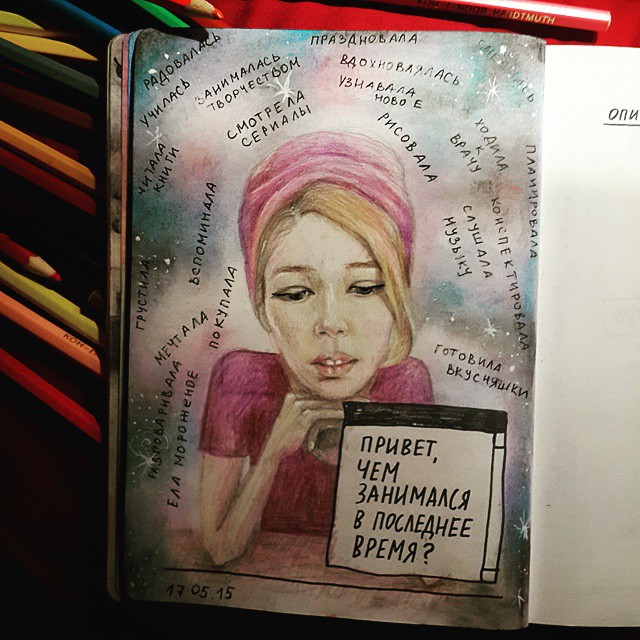 KOH-I-NOOR HARDTMUTH
ПРАЗДНОВАЛА
РАДОВАЛАСЬ
УЧИЛАСЬ
ЗАНИМАЛАСЬ
ТВОРЧЕСТВОМ
СМОТРЕЛА
СЕРИАЛЫ
ВДОХНОВЛЯЛАСЬ
УЗНАВАЛА
НОВОЕ
РИСОВАЛА
ХОДИЛА
К
ВРАЧУ
ПЛАНИРОВАЛА
КОНСПЕКТИРОВАЛА
СЛУШАЛА
МУЗЫКУ
ЧИТАЛА
КНИГИ
ВСПОМИНАЛА
ГРУСТИЛА
ПОКУПАЛА
МЕЧТАЛА
РАЗГОВАРИВАЛА
ЕЛА МОРОЖЕНОЕ
ГОТОВИЛА
ВКУСНЯШКИ
ПРИВЕТ,
ЧЕМ
ЗАНИМАЛСЯ
В ПОСЛЕДНЕЕ
ВРЕМЯ?
17.05.15
ОПИ
KOH-I